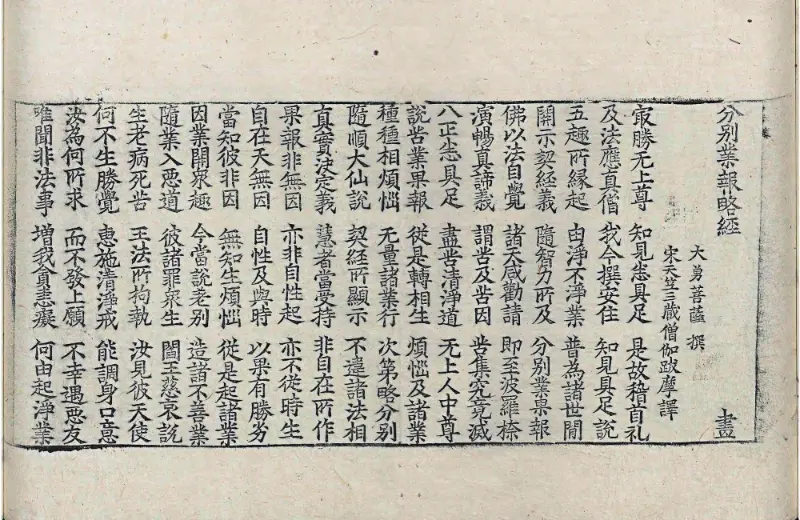 分別業報略經 盡
大勇菩薩 撰
宋天竺三藏僧伽跋摩譯
冣勝无上尊 知見悉具足 是故稽首礼
及法應真僧 我今撰安住 知見具足說
五趣所縁起 由淨不淨業 普為諸世閒
開示契經義 隨智力所及 分別業果報
佛以法自覺 諸天咸勸請 即至波羅㮈
演暢真諦義 謂苦及苦因 苦集究竟滅
八正悉具足 盡苦清淨道 无上人中尊
說苦業果報 從是轉相生 煩惱及諸業
種種相煩惱 无量諸業行 次第略分別
隨順大仙說 契經所顯示 不違諸法相
真實決定義 慧者當受持 非自在所作
果報非無因 亦非自性起 亦不從時生
自在天無因 自性及與時 以果有勝劣
當知彼非因 無知生煩惱 從是起諸業
因業開衆趣 今當說差別 造諸不善業
隨業入惡道 彼諸罪衆生 閻王慈哀說
生老病死苦 王法所拘執 汝見彼天使
何不生勝覺 惠施清淨戒 能調身口意
汝為何所求 而不發上願 不幸遇惡友
唯聞非法事 增我貪恚癡 何由起淨業